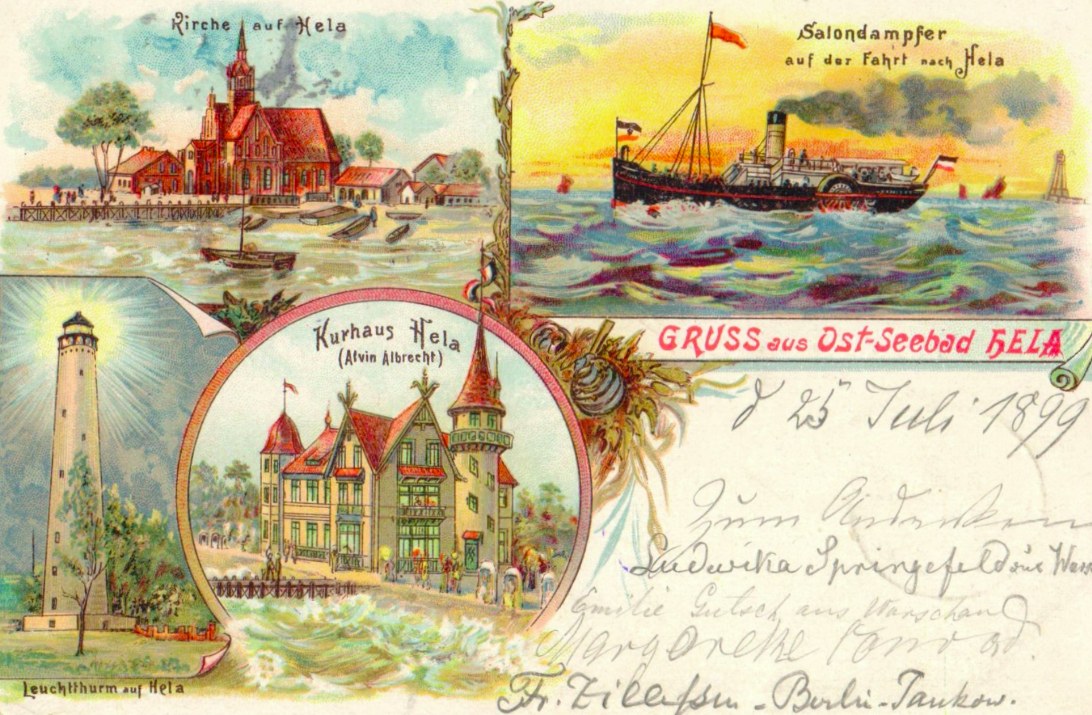 Kirche auf Hela
Salondampfer
auf der Fahrt nach Hela
GRUSS aus Ost-Seebad HELA
Kurhaus Hela
(Alvin Albrecht)
Leuchtthurm auf Hela
d 25 Juli 1899
Zum Andenken
Ludwika Springefeld aus
Emilie Gutsch aus Warschau
Margarethe Conrad.
Fr. Zillessen - Berlin-Pankow.